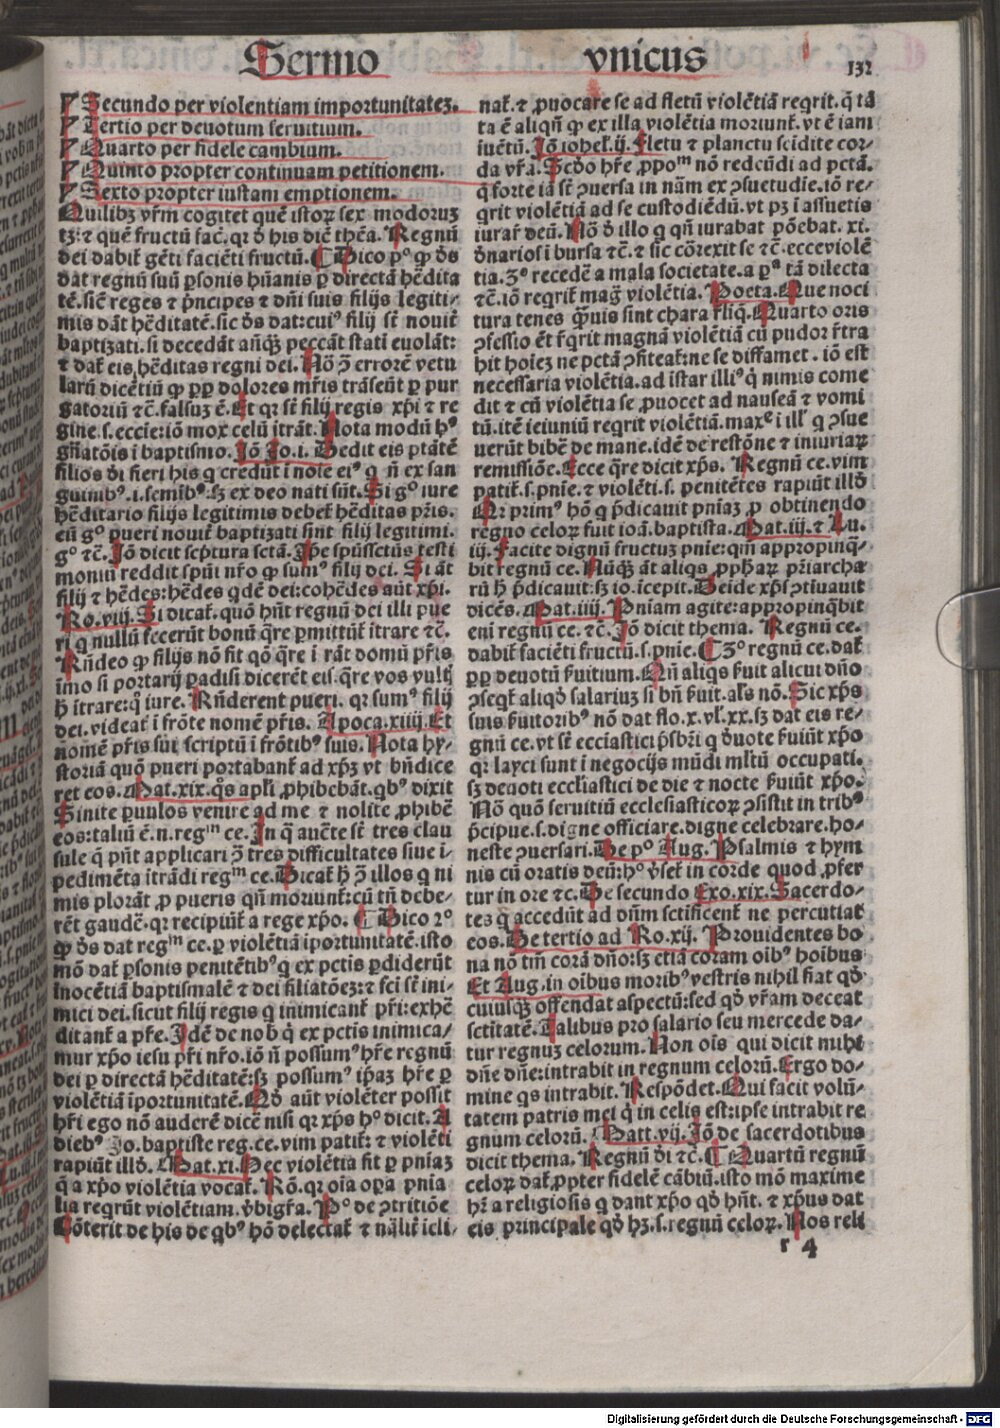 Sermo vnicus 132
Secundo per violentiam importunitatez.
Tertio per deuotum seruitium.
Quarto per fidele cambium.
Quinto propter continuam petitionem.
Sexto propter iustam emptionem.
Quilibz vr̄m cogitet quē istoꝝ sex modoruz
tz: ⁊ quē fructū fac̄. qꝛ d̄ his dic̄ thēa. Regnū
dei dabit̄ gēti faciēti fructū. Dico pº ꝙ dˢ
dat regnū suū ꝑsonis hūanis ꝑ directā hēdita
tē. sic̄ reges ⁊ pͥncipes ⁊ dn̄i suis filijs legiti-
mis dāt hēditatē. sic dˢ dat: cuiꝰ filij st̄ nouit̄
baptizati. si decedāt anq̄ꝫ peccāt stati euolāt:
⁊ dat̄ eis hēditas regni dei. Nō ꝯ̄ errorē vetu
larū dicētiū ꝙ ꝓpt̄ dolores mr̄is trāseūt ꝑ pur
gatoriū ⁊c̄. falsuꝫ ē. Et qꝛ st̄ filij regis xp̄i ⁊ re
gine .s. eccie: iō mox celū itrāt. Nota modū hꝰ
gn̄atōis i baptismo. Iō Io.i. Dedit eis ptātē
filios di fieri his q credūt i noīe eiꝰ q n̄ ex san
guinibꝰ .i. semībꝰ: sꝫ ex deo nati sūt. Si gº iure
hēditario filijs legitimis debet̄ hēditas pr̄is.
cū gº pueri nouit̄ baptizati sint filij legitimi.
gº ⁊c̄. Iō dicit scptura sctā. Ipe spūssctūs testi
moniū reddit spūi nr̄o ꝙ sumꝰ filij dei. Si āt
filij ⁊ hēdes: hēdes qdē dei: cohēdes aūt xp̄i.
Ro.viij. Si dicat̄. quō hn̄t regnū dei illi pue
ri q nullū fecerūt bonū q̄re ꝑmittūt̄ itrare ⁊c̄.
Rn̄deo ꝙ filijs nō fit qō q̄re i rāt domū pr̄is
imo si portarij ꝑadisi dicerēt eis. q̄re vos vultꝭ
h̄ itrare: q̊ iure. Rn̄derent pueri. qꝛ sumꝰ filij
dei. videat̄ i frōte nomē pr̄is. Apoca.xiiij. Et
nomē pr̄is sui scriptū i frōtibꝰ suis. Nota hy-
storiā quō pueri portabant̄ ad xp̄ꝫ vt bn̄dice
ret eos. Mat.xix. q̊s apl̄i ꝓhibebāt. qbꝰ dixit
Sinite ꝑuulos venire ad me ⁊ nolite ꝓhibē
eos: taliū ē .n. regᵐ ce. In q̄ aucte st̄ tres clau
sule q pn̄t applicari ꝯ̄ tres difficultates siue i-
pedimēta itrādi regᵐ ce. Dicat̄ h̄ ꝯ̄ illos q ni
mis plorāt ꝓ pueris qn̄ moriunt̄: cū tn̄ debe-
rēt gaudē. qꝛ recipiūt̄ a rege xp̄o. Dico 2º
ꝙ dˢ dat regᵐ ce. ꝑ violētiā iportunitatē. isto
mō dat̄ ꝑsonis penitētibꝰ q ex pctis ꝑdiderūt
inocētiā baptismalē ⁊ dei filiatōez: ⁊ fci st̄ ini-
mici dei. sicut filij regis q inimicant̄ pr̄i: exhē
ditant̄ a pr̄e. Idē de nob q̄ ex pctis inimica-
mur xp̄o iesu pr̄i nr̄o. iō n̄ possumꝰ hr̄e regnū
dei ꝑ directā hēditatē: sꝫ possumꝰ ip̄aꝫ hr̄e ꝑ
violētiā iportunitatē. Nō aūt violēter possit
hr̄i ego nō auderē dicē nisi qꝛ xp̄s hº dicit. A
diebꝰ Jo. baptiste reg. ce. vim patit̄: ⁊ violēti
rapiūt illd̄. Mat.xi. Hec violētia fit ꝑ pn̄iaꝫ
q̄ a xp̄o violētia vocat̄. Rō. qꝛ oia oꝑa pnia
lia reqrūt violētiam. vbigr̄a. Pº de ꝯtritiōe
Cōterit̄ de his de qbꝰ hō delectat̄ ⁊ nālit̄ icli-
nat̄. ⁊ ꝓuocare se ad fletū violētiā reqrit. q̄ tā
ta ē aliqn̄ ꝙ ex illa violētia moriunt̄. vt ē iam
iuētū. Iō iohel.ij. fletu ⁊ planctu scidite cor-
da vr̄a. Scd̄o hr̄e ꝓpoᵐ nō redeūdi ad pctā.
q̄ forte iā st̄ ꝯuersa in nām ex ꝯsuetudīe. iō re-
qrit violētiā ad se custodiēdū. vt pꝫ i assuetis
iurar̄ deū. Nō d̄ illo q qn̄ iurabat pōebat .xi.
dnarios i bursa ⁊c̄. ⁊ sic cōrexit se ⁊c̄. ecce violē
tia. 3º recedē a mala societate. a ꝑª tā dilecta
⁊c̄. iō reqrit̄ mag violētia. Poeta. Que noci
tura tenes q̄uis sint chara r̄liq. Quarto oris
ꝯfessio ēt r̄qrit magnā violētiā cū pudor r̄tra
hit hoīez ne pctā ꝯfiteat̄: ne se diffamet. iō est
necessaria violētia. ad istar illiꝰ q̄ nimis come
dit ⁊ cū violētia se ꝓuocet ad nauseā ⁊ vomi
tū. itē ieiuniū reqrit violētiā. maxe i ill̄ q ꝯsue
uerūt bibē de mane. idē de restōne ⁊ iniuriaꝝ
remissiōe. Ecce q̄re dicit xp̄s. Regnū ce. vim
patit̄ .s. pnīe. ⁊ violēti .s. penitētes rapiūt illd̄
Qꝛ primꝰ hō q pͥdicauit pniaꝫ ꝓ obtinendo
regno celoꝝ fuit ioā. baptista. Mat.iij. ⁊ Lu.
iij. Facite dignū fructuꝫ pnie: qm̄ appropinq̄-
bit regnū ce. Nūq̄ꝫ āt aliqs ꝓphaꝝ pr̄iarcha
rū h̄ pͥdicauit: sꝫ io. icepit. Deide xp̄s ꝯtiuauit
dicēs. Mat.iiij. Pniam agite: appropinq̄bit
eni regnū ce. ⁊c̄. Iō dicit thema. Regnū ce.
dabit̄ faciēti fructū .s. pnie. 3º regnū ce. dat̄
ꝓpt̄ deuotū ẜuitium. Qn̄ aliqs ẜuit alicui dn̄o
ꝯseqt̄ aliqd̄ salariuꝫ si bn̄ ẜuit. als nō. Sic xp̄s
suis ẜuitoribꝰ nō dat flo. x. vl̄. xx. sꝫ dat eis re-
gnū ce. vt st̄ ecciastici pͥsbri q d̄uote ẜuiūt xp̄o
qꝛ layci sunt i negocijs mūdi ml̄tū occupati.
sꝫ deuoti eccliastici de die ⁊ nocte ẜuiūt xp̄o.
Nō quō seruitiū ecclesiasticoꝝ ꝯsistit in tribꝰ
pͥcipue .s. digne officiare. digne celebrare. ho-
neste ꝯuersari. De pº Aug. Psalmis ⁊ hym
nis cū oratis deū: hº vset̄ in corde quod ꝓfer
tur in ore ⁊c. De secundo Exo.xix. Sacerdo-
tes q̄ accedūt ad dn̄m sctificent̄ ne percutiat
eos. De tertio ad Ro.xij. Prouidentes bo
na nō tm̄ corā dn̄o: sꝫ etiā coram oibꝰ hoibus
Et Aug. in oibus moribꝰ vestris nihil fiat qd̄
cuiuſq̄ꝫ offendat aspectū: sed qd̄ vr̄am deceat
sctitatē. Talibus pro salario seu mercede da-
tur regnuꝫ celorum. Non ois qui dicit mihi
dn̄e dn̄e: intrabit in regnum celorū. Ergo do-
mine qs intrabit. Respōdet. Qui facit volū-
tatem patris mei q̄ in celis est: ipse intrabit re
gnum celorū. Matt.vij. Iō de sacerdotibus
dicit thema. Regnū di ⁊c̄. Quartū regnū
celoꝝ dat̄. ꝓpter fidelē cābiū. isto mō maxime
hr̄ a religiosis q dant xp̄o qd̄ hn̄t. ⁊ xp̄us dat
eis principale qd̄ hꝫ .s. regnū celoꝝ. Nos reli
r 4
Digitalisierung gefördert durch die Deutsche Forschungsgemeinschaft - DFG